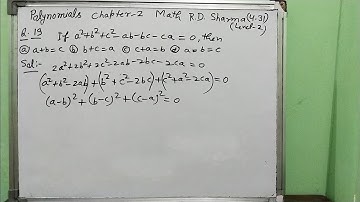 Polynomials chapter-2 Math R.D. Sharma (4.31)
(Level-2)
Q.19 If a²+b²+c²-ab-bc-ca=0, then
ⓐ a+b=c ⓑ b+c=a ⓒ c+a=b ⓓ a=b=c
Sol:- 2a²+2b²+2c²-2ab-2bc-2ca=0
(a²+b²-2ab)+(b²+c²-2bc)+(c²+a²-2ca)=0
(a-b)²+(b-c)²+(c-a)²=0